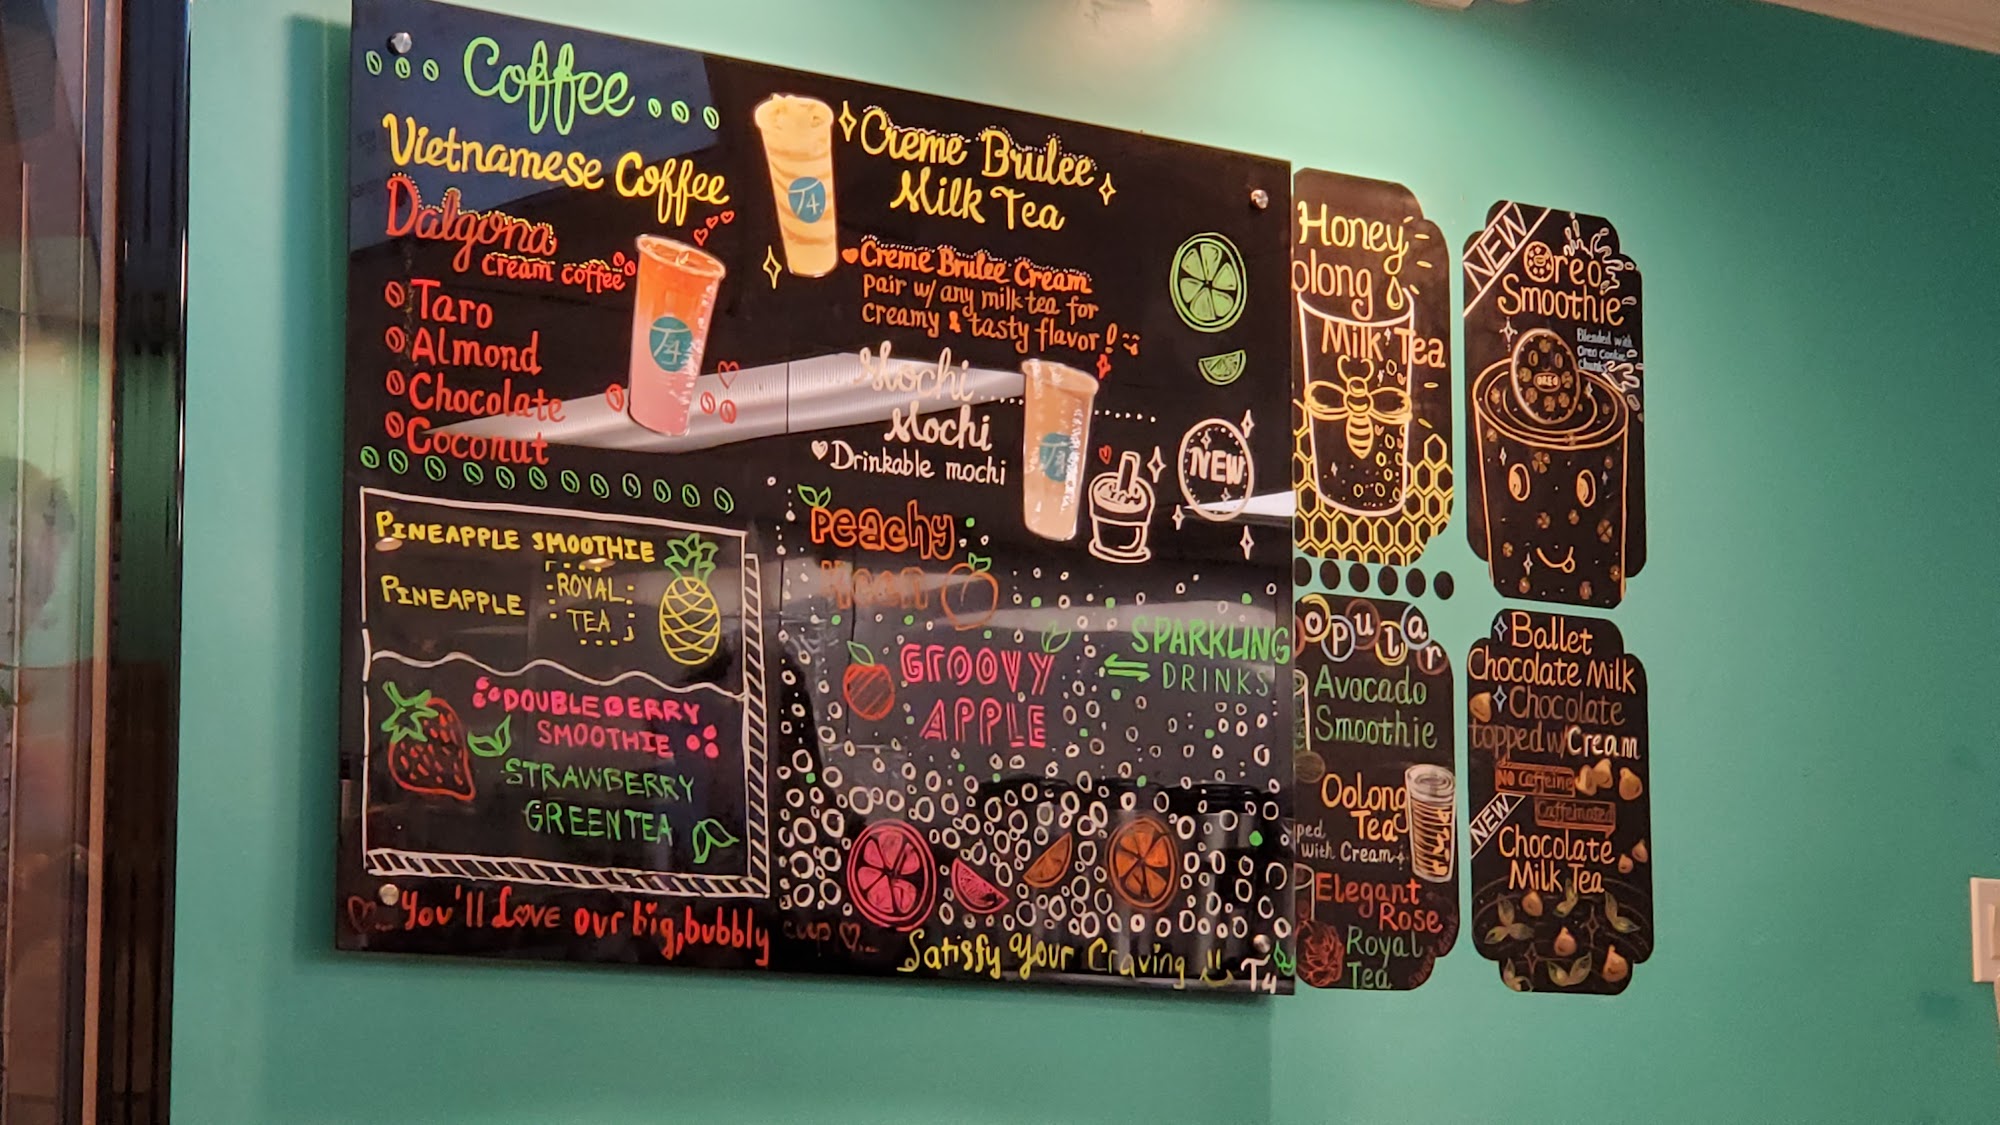 Coffee
Vietnamese Coffee
Dalgona
cream coffee
Taro
Almond
Chocolate
Coconut
T4
Creme Brulee
Milk Tea
T4
Creme Brulee Cream
pair w/ any milk tea for
creamy & tasty flavor!
Mochi
Mochi
Drinkable mochi
NEW
PINEAPPLE SMOOTHIE
PINEAPPLE
ROYAL
TEA
DOUBLEBERRY
SMOOTHIE
STRAWBERRY
GREENTEA
Peachy
Keen
GROOVY
APPLE
SPARKLING
DRINKS
You'll Love our big, bubbly cup
Satisfy Your Craving
T4
Honey
olong
Milk Tea
NEW
Oreo
Smoothie
Blended with
Oreo Cookie
Chunks
OREO
opular
Avocado
Smoothie
Oolong
Tea
ped
with Cream
Elegant
Rose
Royal
Tea
Ballet
Chocolate Milk
Chocolate
topped w/ Cream
No Caffeine
Caffeinated
NEW
Chocolate
Milk Tea